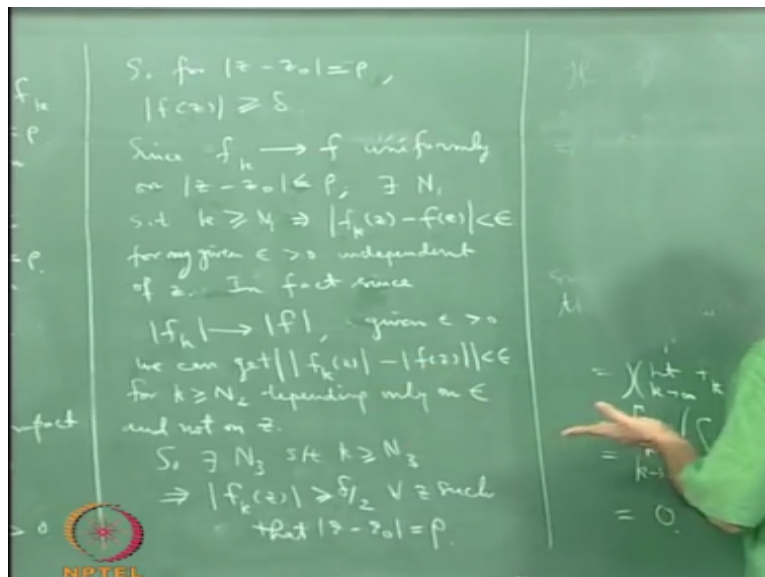 f_k
= ρ
= ρ.
mpact
> 0
So for |z - z_0| = ρ,
|f(z)| ⩾ δ.
Since f_k → f uniformly
on |z - z_0| ≤ ρ, ∃ N_1
s.t k ⩾ N_1 ⇒ |f_k(z) - f(z)| < ϵ
for any given ϵ > 0 independent
of z. In fact since
|f_k| → |f|, given ϵ > 0
we can get ||f_k(z)| - |f(z)|| < ϵ
for k ⩾ N_2 depending only on ϵ
and not on z.
So ∃ N_3 s.t. k ⩾ N_3
⇒ |f_k(z)| ⩾ δ/2 ∀ z such
that |z - z_0| = ρ.
k→∞
= 0.
NPTEL